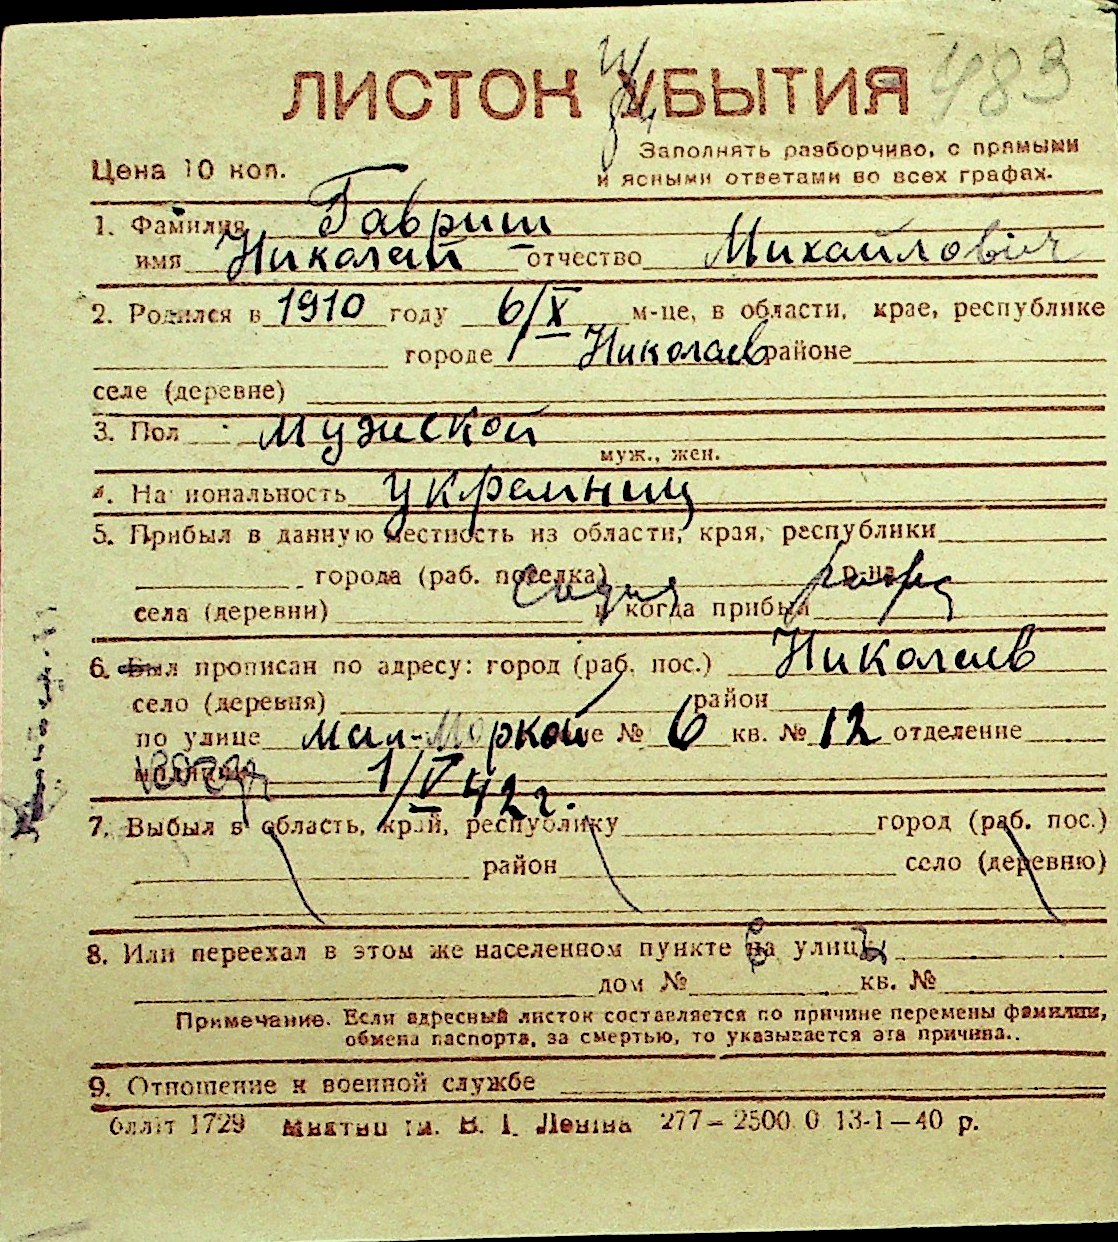 483
ЛИСТОК УБЫТИЯ
Заполнять разборчиво, с прямыми
Цена 10 коп.
и ясными ответами во всех графах.
1. Фамилия Гавриш
имя Николай отчество Михайлович
2. Родился в 1910 году 6/X м-це, в области, крае, республике
городе Николаев районе
селе (деревне)
3. Пол мужской
муж., жен.
4. Национальность украинец
5. Прибыл в данную местность из области, края, республики
города (раб. поселка) р-на
села (деревни) и когда прибыл
6. Был прописан по адресу: город (раб. пос.) Николаев
село (деревня) район
по улице Мал-Морской № 6 кв. № 12 отделение
милиции 1/V 42 г.
7. Выбыл в область, край, республику город (раб. пос.)
район село (деревню)
8. Или переехал в этом же населенном пункте на улицу
дом № кв. №
Примечание. Если адресный листок составляется по причине перемены фамилии,
обмена паспорта, за смертью, то указывается эта причина..
9. Отношение к военной службе
1729 В. І. Леніна 277–2500 0 13-1–40 р.